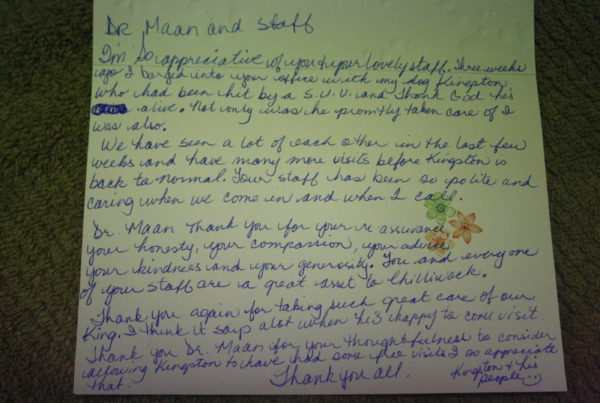 Dr. Maan and Staff
I'm so appreciative of you & your lovely staff. Three weeks
ago I barged into your office with my dog Kingston
who had been hit by a S.U.V. and Thank God he's
alive. Not only was he promptly taken care of I
was also.
We have seen a lot of each other in the last few
weeks and have many more visits before Kingston is
back to normal. Your staff has been so polite and
caring when we come in and when I call.
Dr. Maan Thank you for your re assurance
your honesty, your compassion, your advice
your kindness and your generosity. You and everyone
of your staff are a great asset to Chilliwack.
Thank you again for taking such great care of our
King. I think it says alot when he's happy to come visit.
Thank you Dr. Maan for your thoughtfulness to consider
allowing Kingston to have had some free visits I so appreciate
that. Thank you all. Kingston & his
people :)